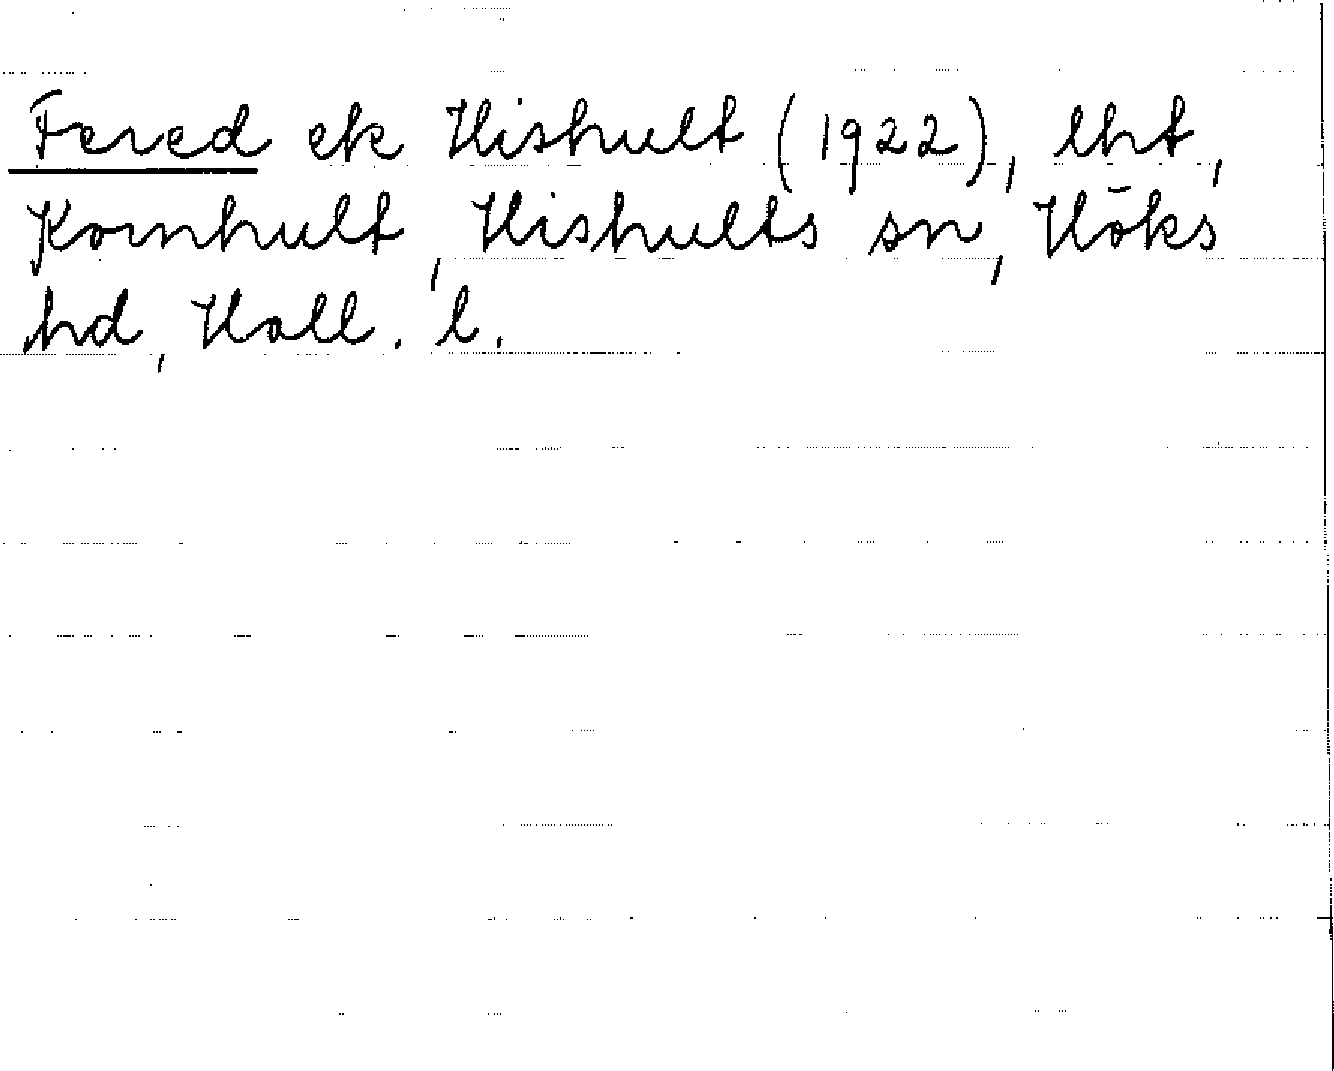 Fered ek Hishult (1922), lht,
Kornhult, Hishults sn, Höks
hd, Hall. l.